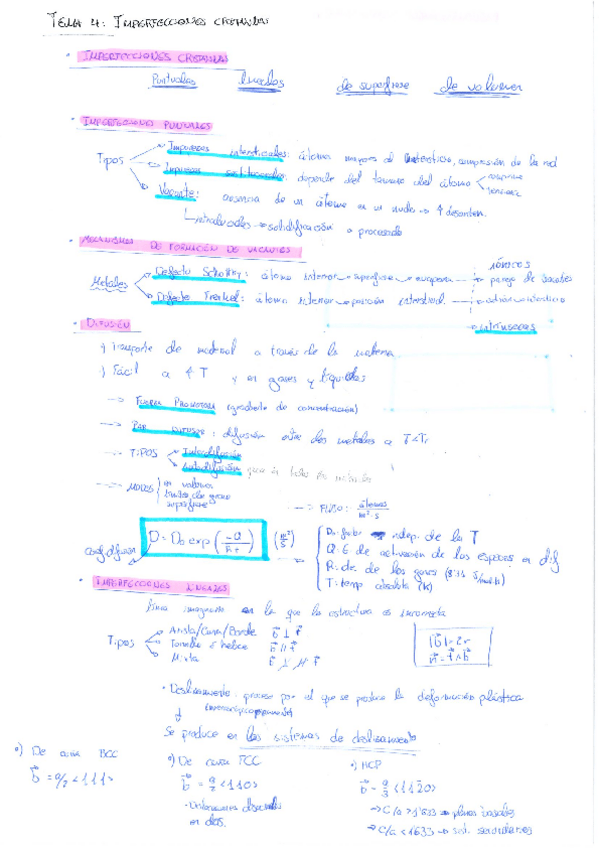 TEMA 4: IMPERFECCIONES CRISTALINAS
· IMPERFECCIONES CRISTALINAS
Puntuales lineales de superficie de volumen
· IMPERFECCIONES PUNTUALES
Tipos
Impurezas intersticiales: átomo mayores al intersticio, compresión de la red
Impurezas sustitucionales: depende del tamaño del átomo
Vacante: ausencia de un átomo en un nudo → desorden.
introducidos → solidificación o procesado
· MECANISMOS DE FORMACIÓN DE VACANTES
Metales
iónicos
Defecto Schottky: átomo interior → superficie → evapora → pareja de vacantes
Defecto Frenkel: átomo interior → posición intersticial → catión → intersticio
→ intrínsecas
· DIFUSIÓN
Transporte de material a través de la materia
Fácil a ↑ T y en gases y líquidos
→ FUERZA PROMOTORA (gradiente de concentración)
→ PAR DIFUSOR: difusión entre dos metales a T<Tf
→ TIPOS
Interdifusión
Autodifusión
→ MODOS
en volumen
límites de grano
superficie
→ FLUJO: átomos / m²·s
coef. difusión
D = D₀ exp (-Q / R·T) (m²/s)
D₀: factor indep. de la T
Q: E de activación de las especies en dif
R: cte. de los gases (8'31 J/mol·K)
T: temp absoluta (K)
· IMPERFECCIONES LINEALES
línea imaginaria en la que la estructura es incorrecta
Tipos
Arista/Cuña/Borde b ⊥ t
Tornillo o hélice b // t
Mixta
|b| = 2r
n = t ∧ b
· Deslizamiento: proceso por el que se produce la deformación plástica
Se produce en los sistemas de deslizamiento
·) De cuña BCC
b = a/2 <111>
·) De cuña FCC
b = a/2 <110>
·) HCP
b = a/3 <1120>
en dos.
→ C/a > 1'633 → planos basales
→ C/a < 1'633 → sist. secundarios